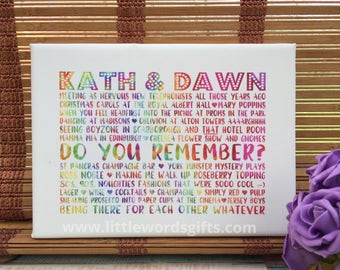 KATH & DAWN
MEETING AS NERVOUS NEW TELEPHONISTS ALL THOSE YEARS AGO
CHRISTMAS CAROLS AT THE ROYAL ALBERT HALL♥MARY POPPINS
WHEN YOU FELL HEADFIRST INTO THE PICNIC AT PROMS IN THE PARK
DANCING AT MADISONS ♥ OBLIVION AT ALTON TOWERS AAAARGHHH
SEEING BOYZONE IN SCARBOROUGH AND THAT HOTEL ROOM
MAMMA MIA IN EDINBURGH ♥ CHELSEA FLOWER SHOW AND GNOMES
DO YOU REMEMBER?
ST PANCRAS CHAMPAGNE BAR ♥ YORK MINSTER MYSTERY PLAYS
ROSS NOBLE ♥ MAKING ME WALK UP ROSEBERRY TOPPING
80'S, 90'S, NOUGHTIES FASHIONS THAT WERE SOOO COOL :-)
LAGER ♥ WINE ♥ COCKTAILS ♥ CHAMPAGNE ♥ SIMPLY RED ♥ PULP
SNEAKING PROSECCO INTO PAPER CUPS AT THE CINEMA♥JERSEY BOYS
BEING THERE FOR EACH OTHER WHATEVER
www.littlewordsgifts.com